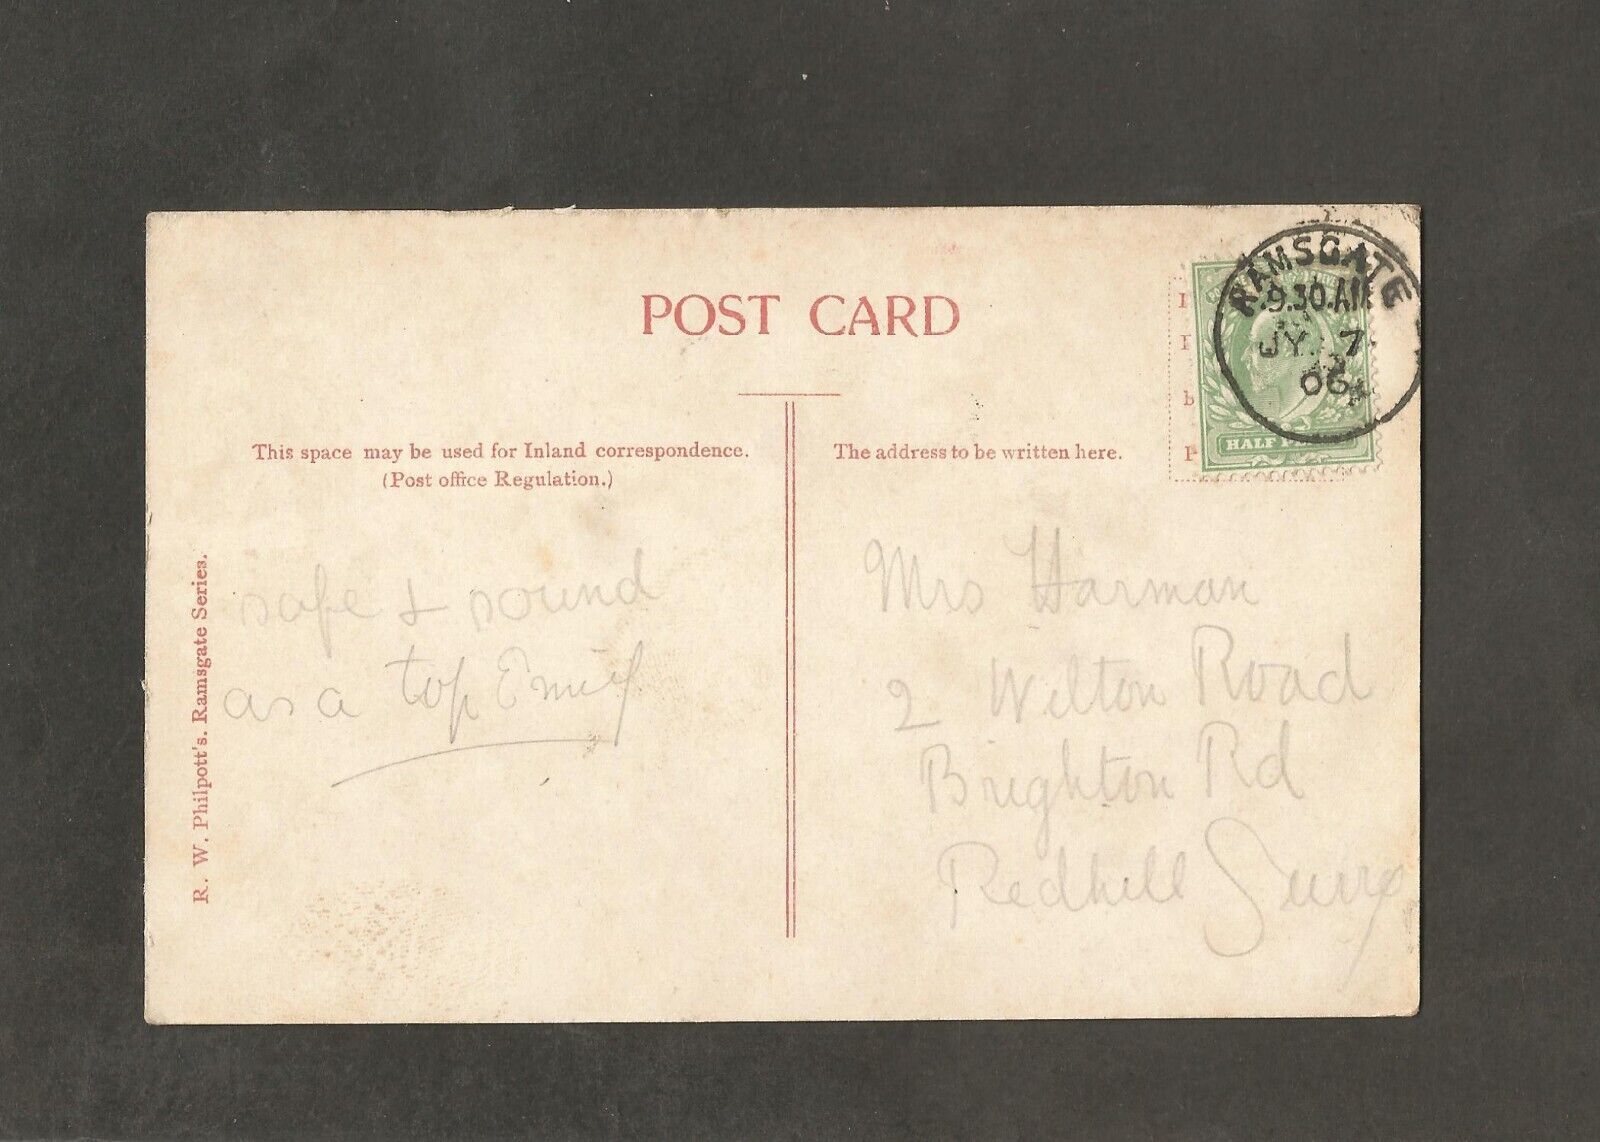 POST CARD
This space may be used for Inland correspondence.
(Post office Regulation.)
The address to be written here.
RAMSGATE
9.30.AM
JY 7
06
HALF
R. W. Philpott's. Ramsgate Series.
safe & sound
as a top Emily
Mrs Harman
2 Wilton Road
Brighton Rd
Redhill Surrey